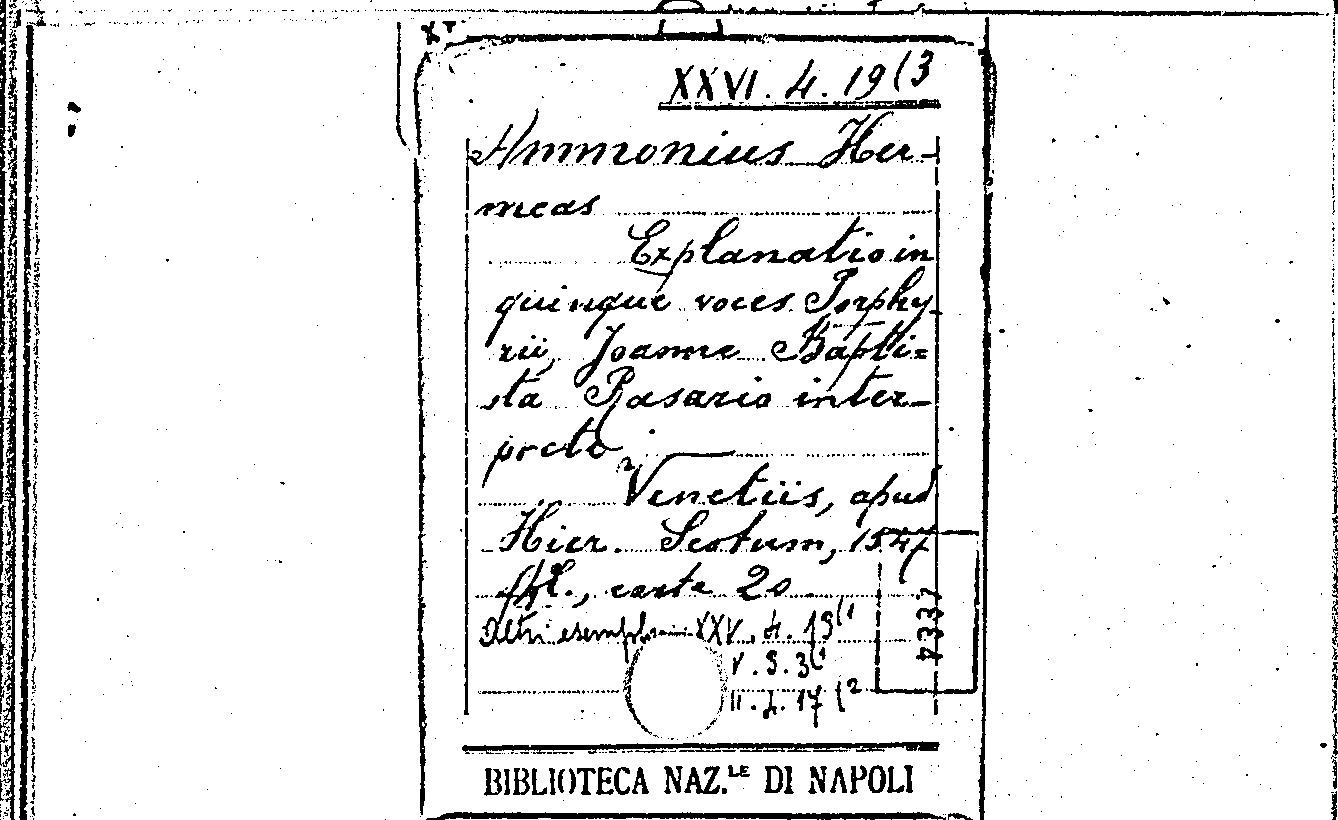 XXVI. 4. 19 (3
Ammonius Her-
meas
Explanatio in
quinque voces Porphy-
rii, Joanne Bapti=
sta Rasario inter-
prete
Venetiis, apud
Hier. Scotum, 1547
fol., carte 20
Altri esemplari XXV. 4. 19 (1
V. 9. 3 (1
II. 4. 17 (2
4337
BIBLIOTECA NAZ.LE DI NAPOLI